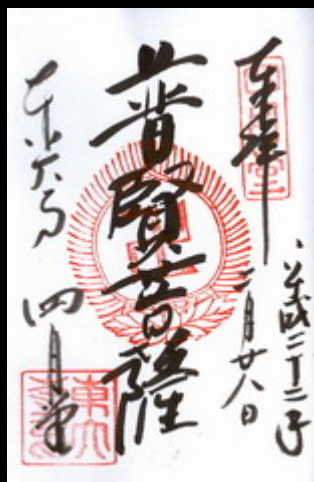 奉拝
平成二十二年
二月廿八日
普賢菩薩
東大寺 四月堂